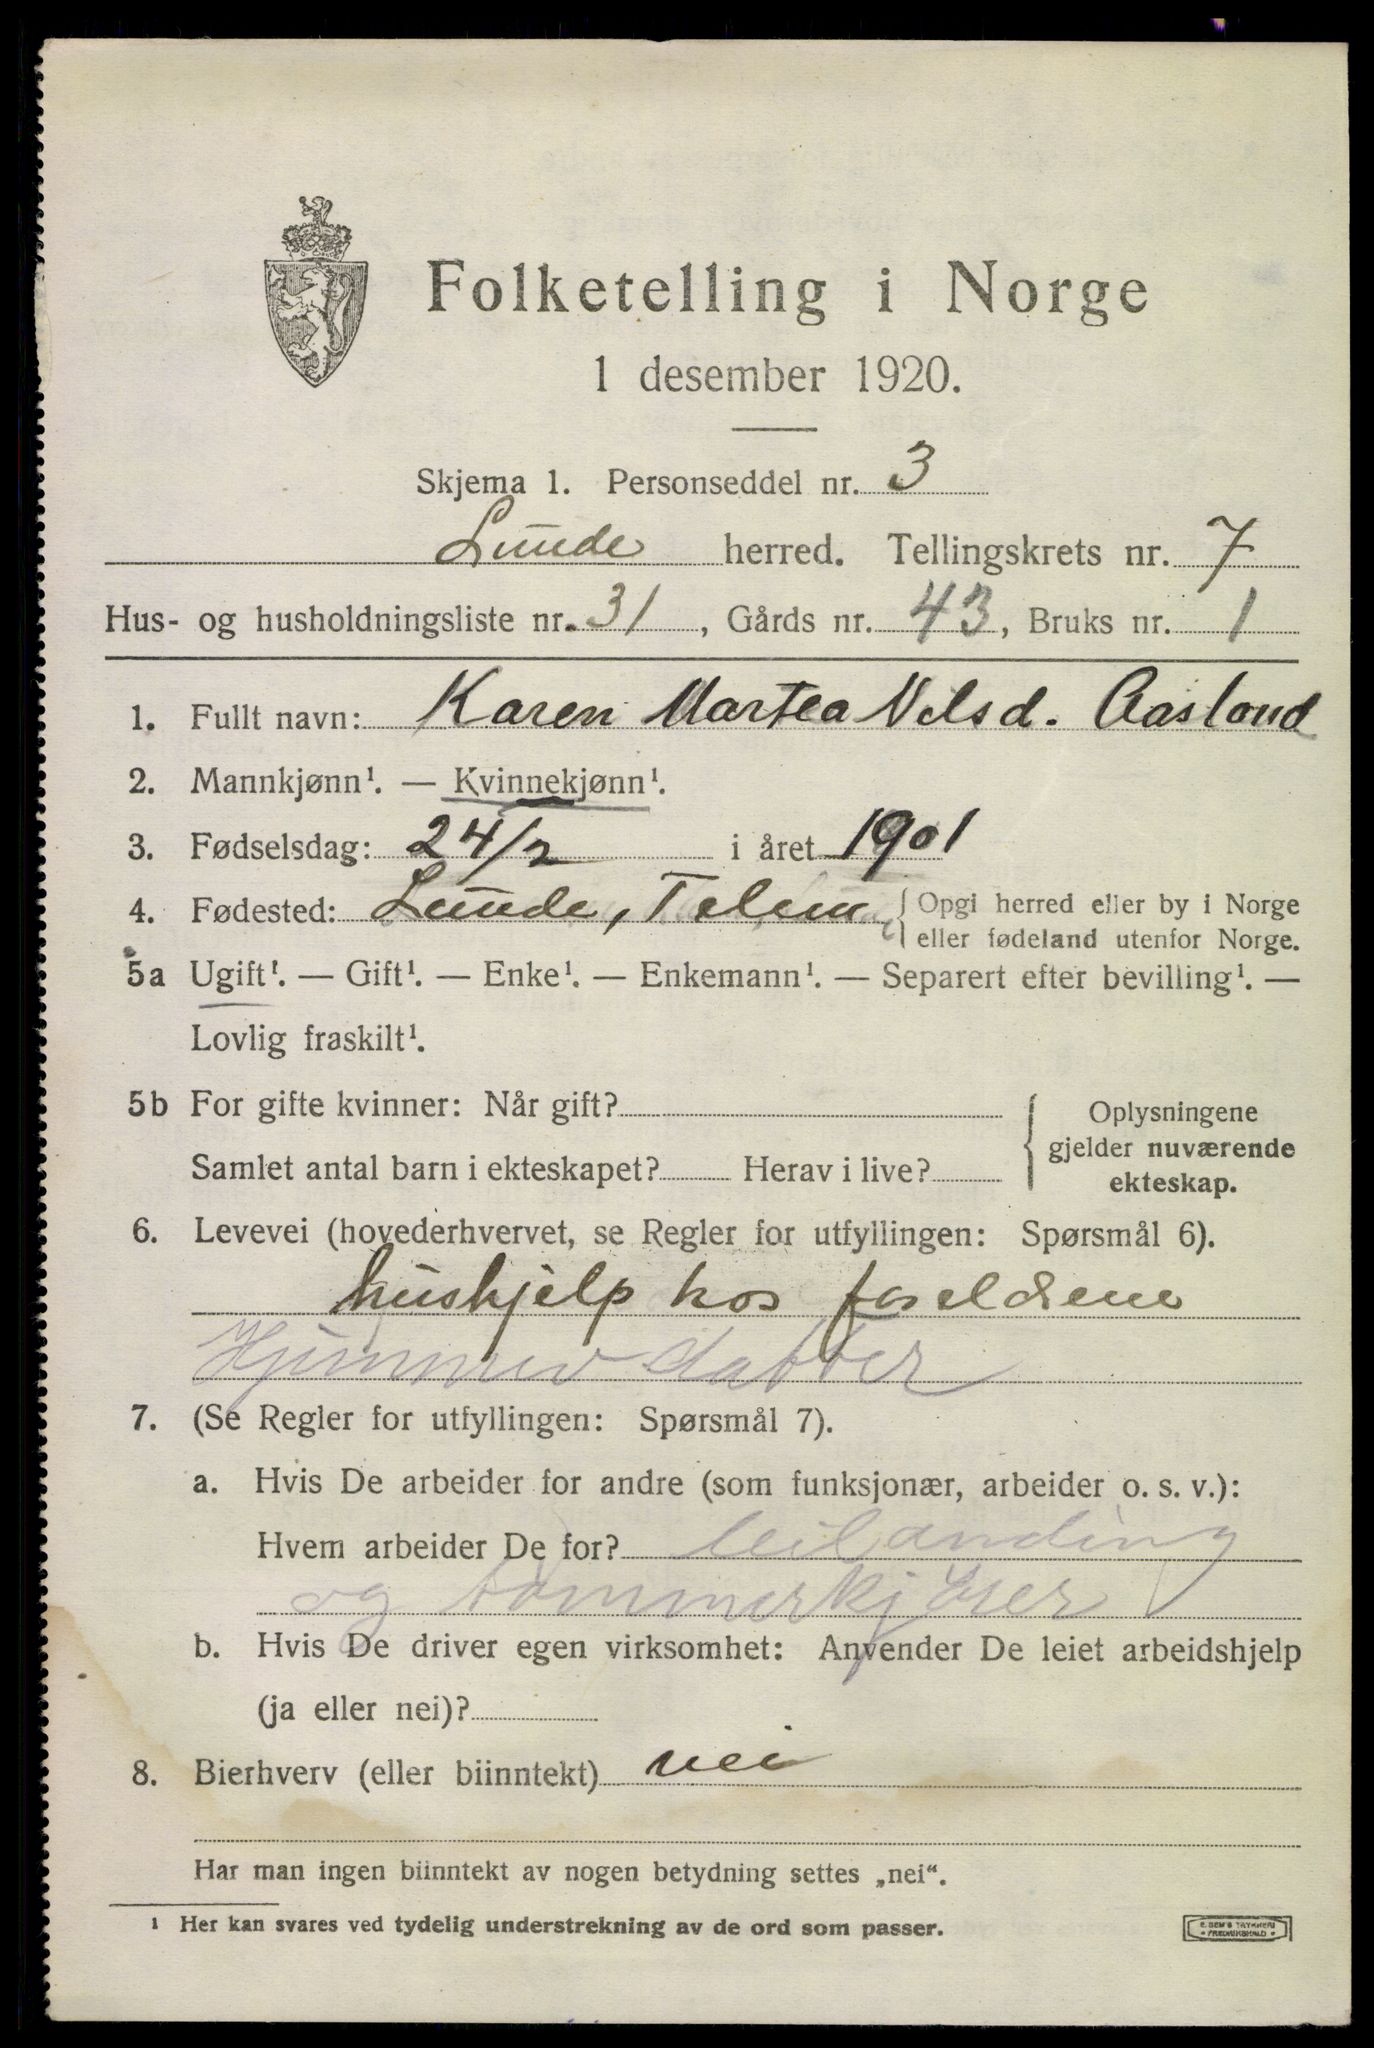 Folketelling i Norge
1 desember 1920.
Skjema 1. Personseddel nr. 3
Lunde herred. Tellingskrets nr. 7
Hus- og husholdningsliste nr. 31, Gårds nr. 43, Bruks nr. 1
1. Fullt navn: Karen Martea Nilsd. Aasland
2. Mannkjønn¹. — Kvinnekjønn¹.
3. Fødselsdag: 24/2 i året 1901
4. Fødested: Lunde, Telem { Opgi herred eller by i Norge
eller fødeland utenfor Norge.
5a Ugift¹. — Gift¹. — Enke¹. — Enkemann¹. — Separert efter bevilling¹. —
Lovlig fraskilt¹.
5b For gifte kvinner: Når gift?
Samlet antal barn i ekteskapet? Herav i live?
{ Oplysningene
gjelder nuværende
ekteskap.
6. Levevei (hovederhvervet, se Regler for utfyllingen: Spørsmål 6).
hushjelp hos foreldrene
Hjemmev datter
7. (Se Regler for utfyllingen: Spørsmål 7).
a. Hvis De arbeider for andre (som funksjonær, arbeider o. s. v.):
Hvem arbeider De for? leilanding
og tømmerkjører
b. Hvis De driver egen virksomhet: Anvender De leiet arbeidshjelp
(ja eller nei)?
8. Bierhverv (eller biinntekt) nei
Har man ingen biinntekt av nogen betydning settes „nei“.
¹ Her kan svares ved tydelig understrekning av de ord som passer.
E. SEM'S TRYKKERI
FREDRIKSHALD